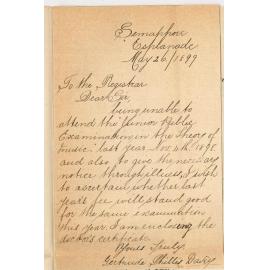 Semaphore
Esplanade
May 26/1899
To the Registrar
Dear Sir,
being unable to
attend the Junior Public
Examination in the Theory of
music last year Nov. 4th 1898
and also to give the necessary
notice through illness, I wish
to ascertain whether last
years fee will stand good
for the same examination
this year. I am enclosing the
doctor's certificate
Yours truly,
Gertrude Phillis Davies